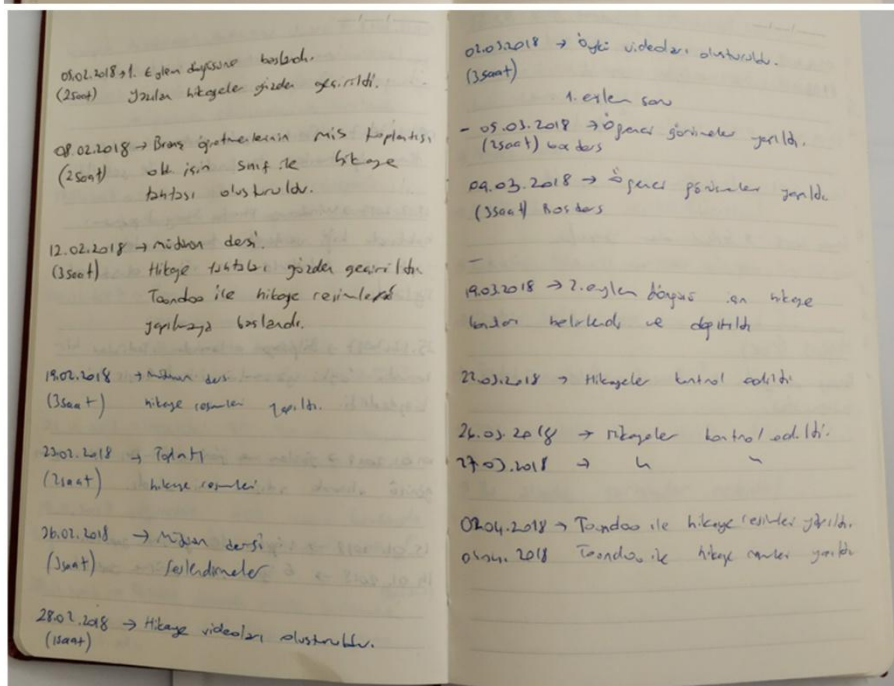 05.02.2018 → 1. Eylem döngüsüne başlandı.
(2saat) Yazılan hikayeler gözden geçirildi.
08.02.2018 → Branş öğretmenlerinin toplantısı
(2saat) için sınıf ile hikaye
tahtası oluşturuldu.
12.02.2018 → dersi.
(3saat) Hikaye tahtaları gözden geçirildi
Toondoo ile hikaye resimleri
yapılmaya başlandı.
19.02.2018 → dersi
(3saat) hikaye resimleri yapıldı.
23.02.2018 → Toplantı
(2saat) hikaye resimleri
26.02.2018 → dersi
(3saat) seslendirmeler
28.02.2018 → Hikaye videoları oluşturuldu.
(1saat)
02.03.2018 → Öykü videoları oluşturuldu.
(3saat)
1. eylem sonu
- 05.03.2018 → Öğrenci görüşmeler yapıldı.
(2saat) boş ders
09.03.2018 → Öğrenci görüşmeler yapıldı
(3saat) Boş ders
-
19.03.2018 → 2. eylem döngüsü için hikaye
konuları belirlendi ve dağıtıldı
22.03.2018 → Hikayeler kontrol edildi
26.03.2018 → Hikayeler kontrol edildi.
27.03.2018 → " "
02.04.2018 → Toondoo ile hikaye resimleri yapıldı.
2018 Toondoo ile hikaye resimler yapıldı